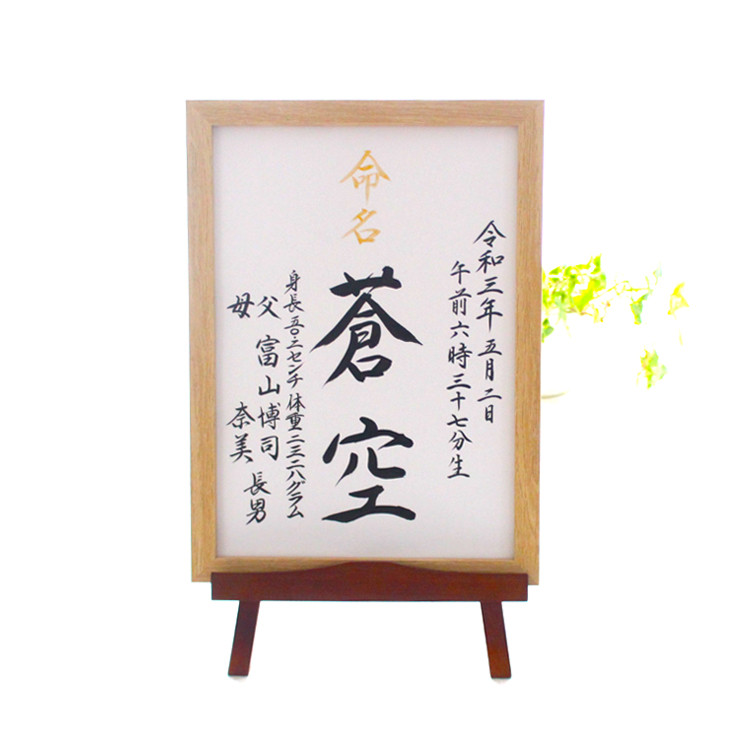 令和三年五月二日
午前六時三十七分生
命名
蒼空
身長五〇.二センチ 体重二三二八グラム
父 富山博司
母 奈美 長男